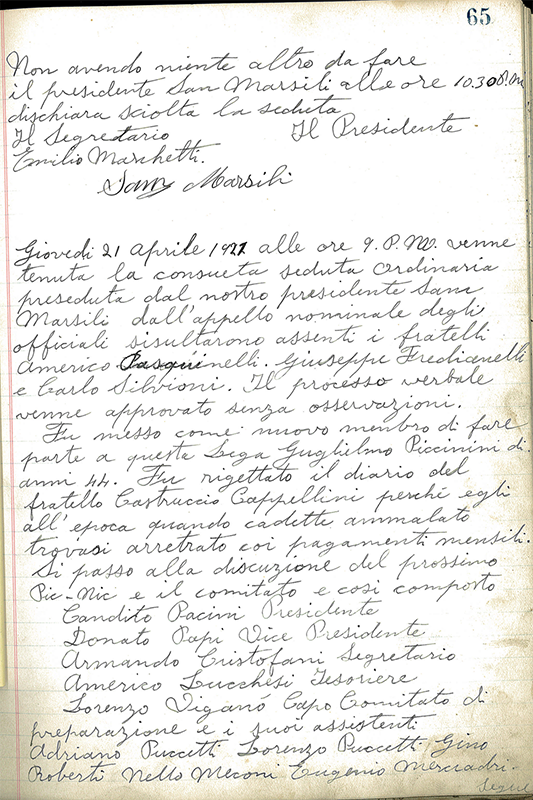 65
Non avendo niente altro da fare
il presidente San Marsili alle ore 10.30 P.M
dischiara sciolta la seduta
Il Segretario Il Presidente
Emilio Marchetti.
Sam Marsili
Giovedi 21 aprile 1921 alle ore 9. P.M. venne
tenuta la consueta seduta ordinaria
preseduta dal nostro presidente Sam
Marsili dall'appello nominale degli
officiali sisultarono assenti i fratelli
Americo Pasquinelli. Giuseppe Fredianelli
e Carlo Silvioni. Il processo verbale
venne approvato senza osservazioni.
Fu messo come nuovo menbro di fare
parte a questa Lega Guglielmo Piccinini di
anni 44. Fu rigettato il diario del
fratello Castruccio Cappellini perchè egli
all'epoca quando cadette ammalato
trovasi arretrato coi pagamenti mensili.
Si passo alla discuzione del prossimo
Pic-Nic e il comitato e cosi composto
Candito Pacini Presidente
Donato Papi Vice Presidente
Armando Cristofani Segretario
Americo Lucchesi Tesoriere
Lorenzo Viganó Capo Comitato di
preparazione e i suoi assistenti
Adriano Puccetti Lorenzo Puccetti Gino
Roberti Nello Meconi Eugenio Mercuadri.
Segue